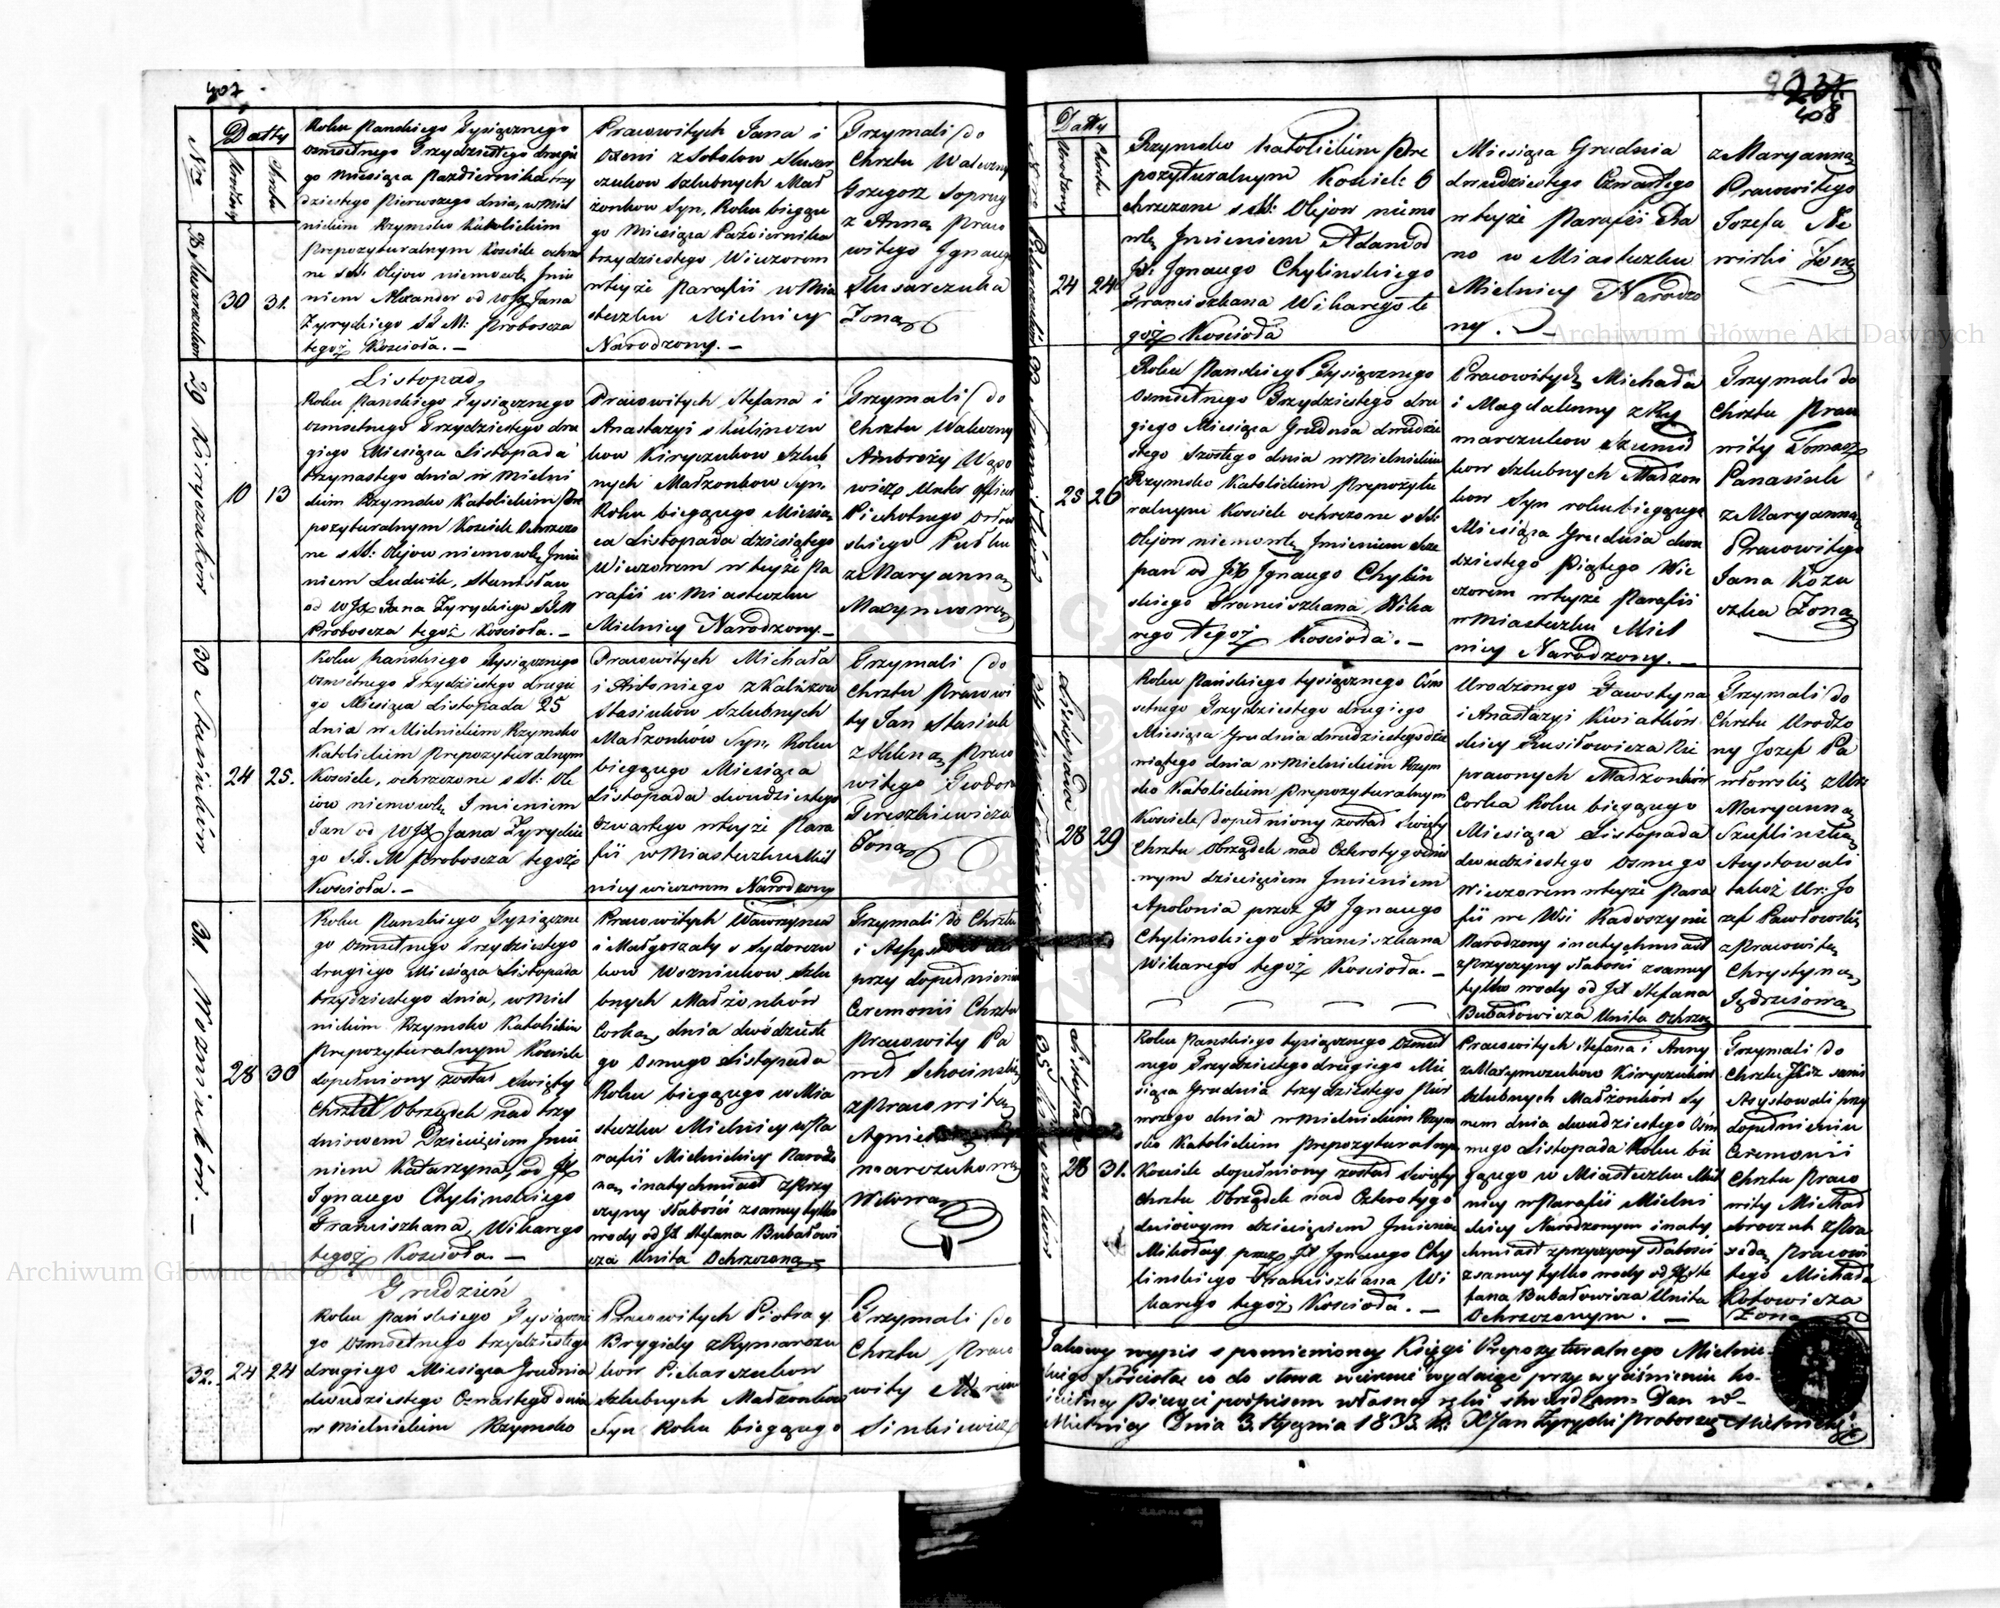 407
Nro
Datty
Urodzony
Chrztu
28 Slusarczukow
30
31.
Roku Panskiego Tysiącznego
osmsetnego Trzydziestego drugie
go Miesiąca Pazdziernika trzy
dziestego Pierwszego dnia, w Miel
nickim Rzymsko Katolickim
Prepozyturalnym Kosciele ochrzo
ne s SS: Olejow niemowle Imie
niem Alexander od WJX Jana
Zyryckiego S.T.M. Proboscza
tegoż Kosciola. —
Pracowitych Jana i
z Sobolow Slusar
czukow Szlubnych Mał
żonkow Syn, Roku bieżące
go Miesiąca Pazdziernika
trzydziestego Wieczorem
w tejże Parafii w Mia
steczku Mielnicy
Narodzony. —
Trzymali do
Chrztu Waleczny
Grzegorz
z Anną Praco
witego Ignacego
Slusarczuka
Zoną
29 Kiryczukow
10
13
Listopad
Roku Panskiego Tysiącznego
osmsetnego Trzydziestego dru
giego Miesiąca Listopada
trzynastego dnia w Mielni
ckim Rzymsko Katolickim Pre
pozyturalnym Kosciele Ochrzczo
ne s SS: Olejow niemowle Imie
niem Ludwik, Stanisław
od WJX Jana Zyryckiego S.T.M
Proboscza tegoż Kosciola. —
Pracowitych Stefana i
Anastazyi
kow Kiryczukow Szlub
nych Małzonkow Syn,
Roku bieżącego Miesią
ca Listopada dziesiątego
Wieczorem w tejże Pa
rafii w Miasteczku
Mielnicy Narodzony. —
Trzymali do
Chrztu Waleczny
Ambroży Wąso
wicz Unter officer
Piechotnego
skiego Pułku
z Maryanną
30 Stasiuków
24
25.
Roku Pańskiego Tysiącznego
osmsetnego Trzydziestego drugie
go Miesiąca Listopada 25
dnia w Mielnickim Rzymsko
Katolickim Prepozyturalnym
Kosciele, ochrzczone s SS: Ole
jow niemowle Imieniem
Jan od WJX Jana Zyryckie
go S.T.M Proboscza tegoż
Kosciola. —
Pracowitych Michała
i Antoniego z Kalixow
Stasiukow Szlubnych
Małzonkow Syn, Roku
bieżącego Miesiąca
Listopada dwudziestego
czwartego w tejże Para
fii w Miasteczku Miel
nicy wieczorem Narodzony
Trzymali do
Chrztu Pracowi
ty Jan Stasiuk
z Heleną Praco
witego Teodora
Tereszkiewicza
Zoną
31. Wozniuków. —
28
30
Roku Panskiego Tysiączne
go osmsetnego Trzydziestego
drugiego Miesiąca Listopada
trzydziestego dnia, w Miel
nickim Rzymsko Katolickim
Prepozyturalnym Kosciele
dopełniony został Swięty
Chrztu Obrządek nad trzy
dniowem Dziecięciem Imie
niem Katarzyna, od JX
Ignacego Chylinskiego
Franciszkana, Wikarego
tegoż Kosciola. —
Pracowitych Wawrzynca
i Małgorzaty s Sydorczu
kow Wozniukow Szlu
bnych Małżonków
Corka, dnia dwódzieste
go osmego Listopada
Roku bieżącego w Mia
steczku Mielnicy w Pa
rafii Mielnickiej Narodzo
na, i natychmiast z Przy
czyny słabości z samey tylko
wody od JX Stefana Bubałowi
cza Unita Ochrzczona —
Trzymali do Chrztu
przy dopełnieniu
Ceremonii Chrztu
Pracowity Pa
weł
z Pracowitą
Wdową
32.
24
24
Grudzień
Roku Pańskiego Tysiączne
go osmsetnego trzydziestego
drugiego Miesiąca Grudnia
dwudziestego Czwartego dnia
w Mielnickim Rzymsko
Pracowitych Piotra y
Brygidy z Rymarczu
kow Piekarczukow
Szlubnych Małżonków
Syn Roku bieżącego
Trzymali do
Chrztu Praco
wity
Sinkiewicz
408
Datty
Urodzony
Chrztu
24
24
Rzymsko Katolickim Pre
pozyturalnym Kosciele O
chrzczone s SS: Olejow niemo
wle Imieniem Adam od
JX: Ignacego Chylinskiego
Franciszkana Wikarego te
goż Kosciola
Miesiąca Grudnia
dwudziestego Czwartego
w tejże Parafii Ra
no w Miasteczku
Mielnicy Narodzo
ny. —
z Maryanną
Pracowitego
Jozefa
Zoną
25
26
Roku Panskiego Tysiącznego
Osmsetnego Trzydziestego dru
giego Miesiąca Grudnia dwudzie
stego Szostego dnia w Mielnickim
Rzymsko Katolickim Prepozytu
ralnym Kosciele ochrzczone s SS:
Olejow niemowle Imieniem Szcze
pan od JX Ignacego Chylin
skiego Franciszkana Wika
rego Tegoż Kosciola. —
Pracowitych Michała
i Magdaleny z Ry
marczukow
kow Szlubnych Małzon
kow Syn roku bieżącego
Miesiąca Grudnia dwu
dziestego Piątego Wie
czorem w tejże Parafii
w Miasteczku Miel
nicy Narodzony. —
Trzymali do
Chrztu Praco
wity Tomasz
Panasiuk
z Maryanną
Pracowitego
Jana Kozu
szka Zoną
Listopada
28
29
Roku Pańskiego tysiącznego Osm
setnego Trzydziestego drugiego
Miesiąca Grudnia dwudziestego dzie
wiątego dnia w Mielnickim Rzym
sko Katolickim Prepozyturalnym
Kosciele dopełniony został Swięty
Chrztu Obrządek nad Czterotygodnio
wym dziecięciem Imieniem
Apolonia przez JX Ignacego
Chylinskiego Franciszkana
Wikarego tegoż Kosciola. —
Urodzonego Fawstyna
i Anastazyi Kwiatkow
skiey Rusiłowicza Nie
prawnych Małzonków
Corka Roku bieżącego
Miesiąca Listopada
dwudziestego osmego
Wieczorem w tejże Para
fii we Wsi Radoszynie
Narodzony i natychmiast
z Przyczyny słabości z samey
tylko wody od JX Stefana
Bubałowicza Unita Ochrzcz
Trzymali do
Chrztu Urodzo
ny Jozef Pa
włowski z Ur:
Maryanną
Assystowali
takoż Ur: Jo
zef Pawłowski
z Pracowitą
Chrystyną
Listopada
35 Kiryczukow
28
31.
Roku Panskiego tysiącznego Osmset
nego Trzydziestego drugiego Mie
siąca Grudnia trzydziestego Pier
wszego dnia w Mielnickim Rzym
sko Katolickim Prepozyturalnym
Kosciele dopełniony został Swięty
Chrztu Obrządek nad Czterotygo
dniowym dziecięciem Imieniem
Mikołay przez JX Ignacego Chy
linskiego Franciszkana Wi
karego tegoż Kosciola. —
Pracowitych Stefana i Anny
z Kiryczukow
Szlubnych Małżonków Sy
nem dnia dwudziestego Osm
nego Listopada Roku bie
żącego w Miasteczku Miel
nicy w Parafii Mielni
ckiey Narodzonym i naty
chmiast z przyczyny słabości
z samey tylko wody od JX Ste
fana Bubałowicza Unita
Ochrzczonym. —
Trzymali do
Chrztu
Assystowali przy
dopełnieniu
Ceremonii
Chrztu Praco
wity Michał
Pracowi
tego Michała
Kotowicza
Zoną
Takowy wypis s pomienioney Księgi Prepozyturalnego Mielnic
kiego Kościoła co do słowa wiernie wydaiąc przy wyciśnieniu ko
ścielney Pieczęci podpisem własney ręki stwierdzam. Dan w
Mielnicy Dnia 3. Stycznia 1833. R: X Jan Zyrycki Proboszcz Mielnicki
Archiwum Główne Akt Dawnych
Archiwum Główne Akt Dawnych